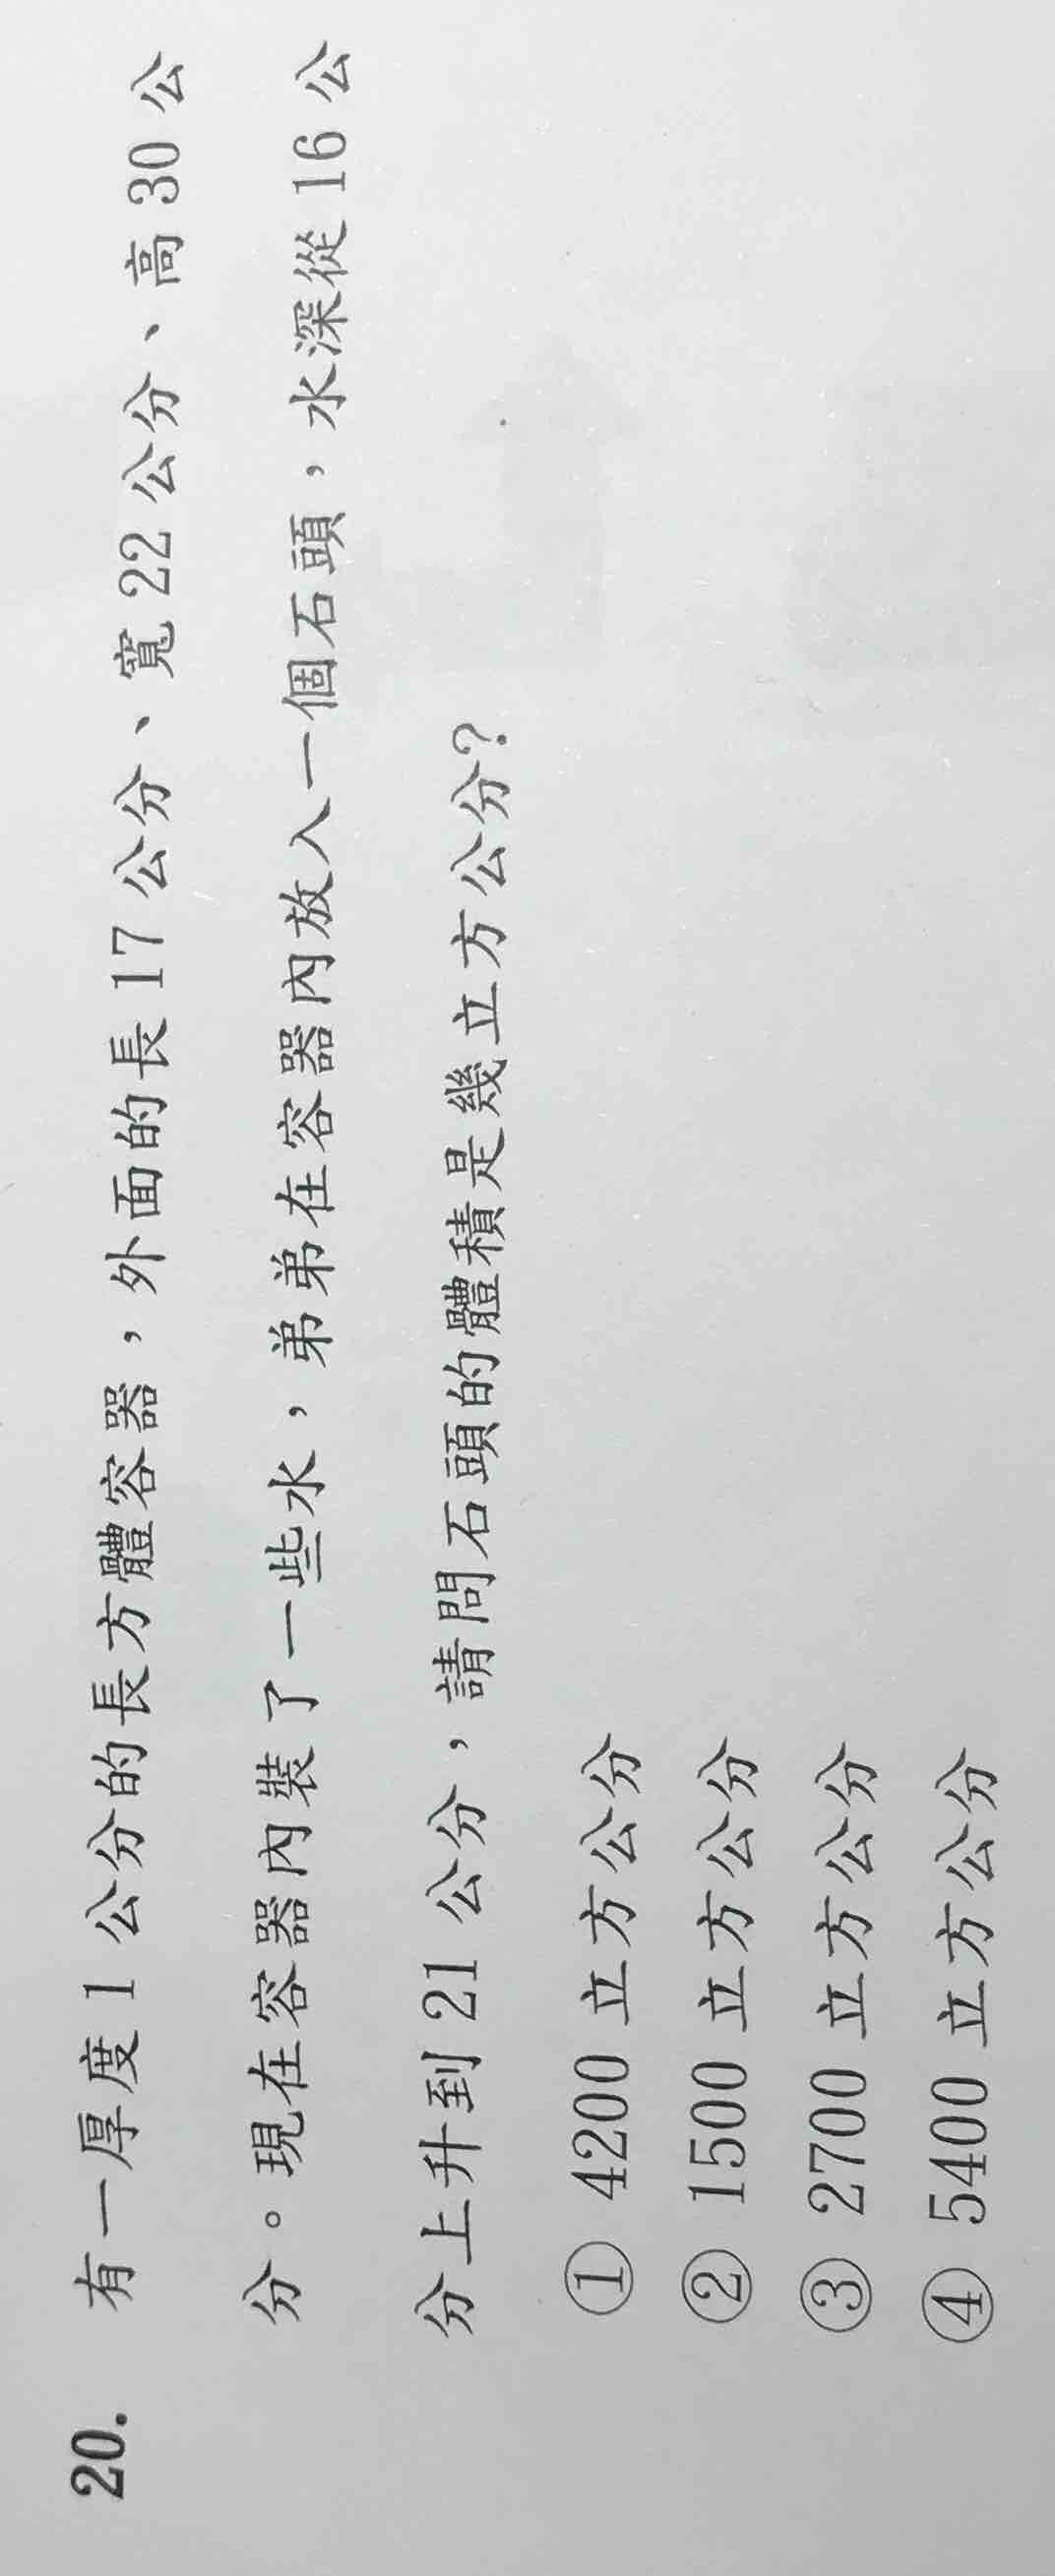 20. 有一厚度1公分的長方體容器，外面的長17公分、寬22公分、高30公
分。現在容器內裝了一些水，弟弟在容器內放入一個石頭，水深從16公
分上升到21公分，請問石頭的體積是幾立方公分?
① 4200立方公分
② 1500立方公分
③ 2700立方公分
④ 5400立方公分